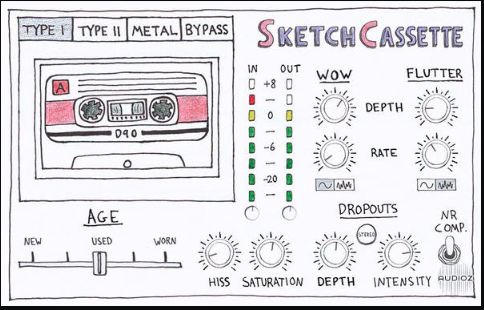 TYPE I TYPE II METAL BYPASS
SKETCHCASSETTE
A
D90
IN OUT
+8
0
-6
-20
WOW FLUTTER
DEPTH
RATE
AGE
NEW USED WORN
DROPOUTS
STEREO
NR
COMP.
HISS SATURATION DEPTH INTENSITY
AUDIOZ